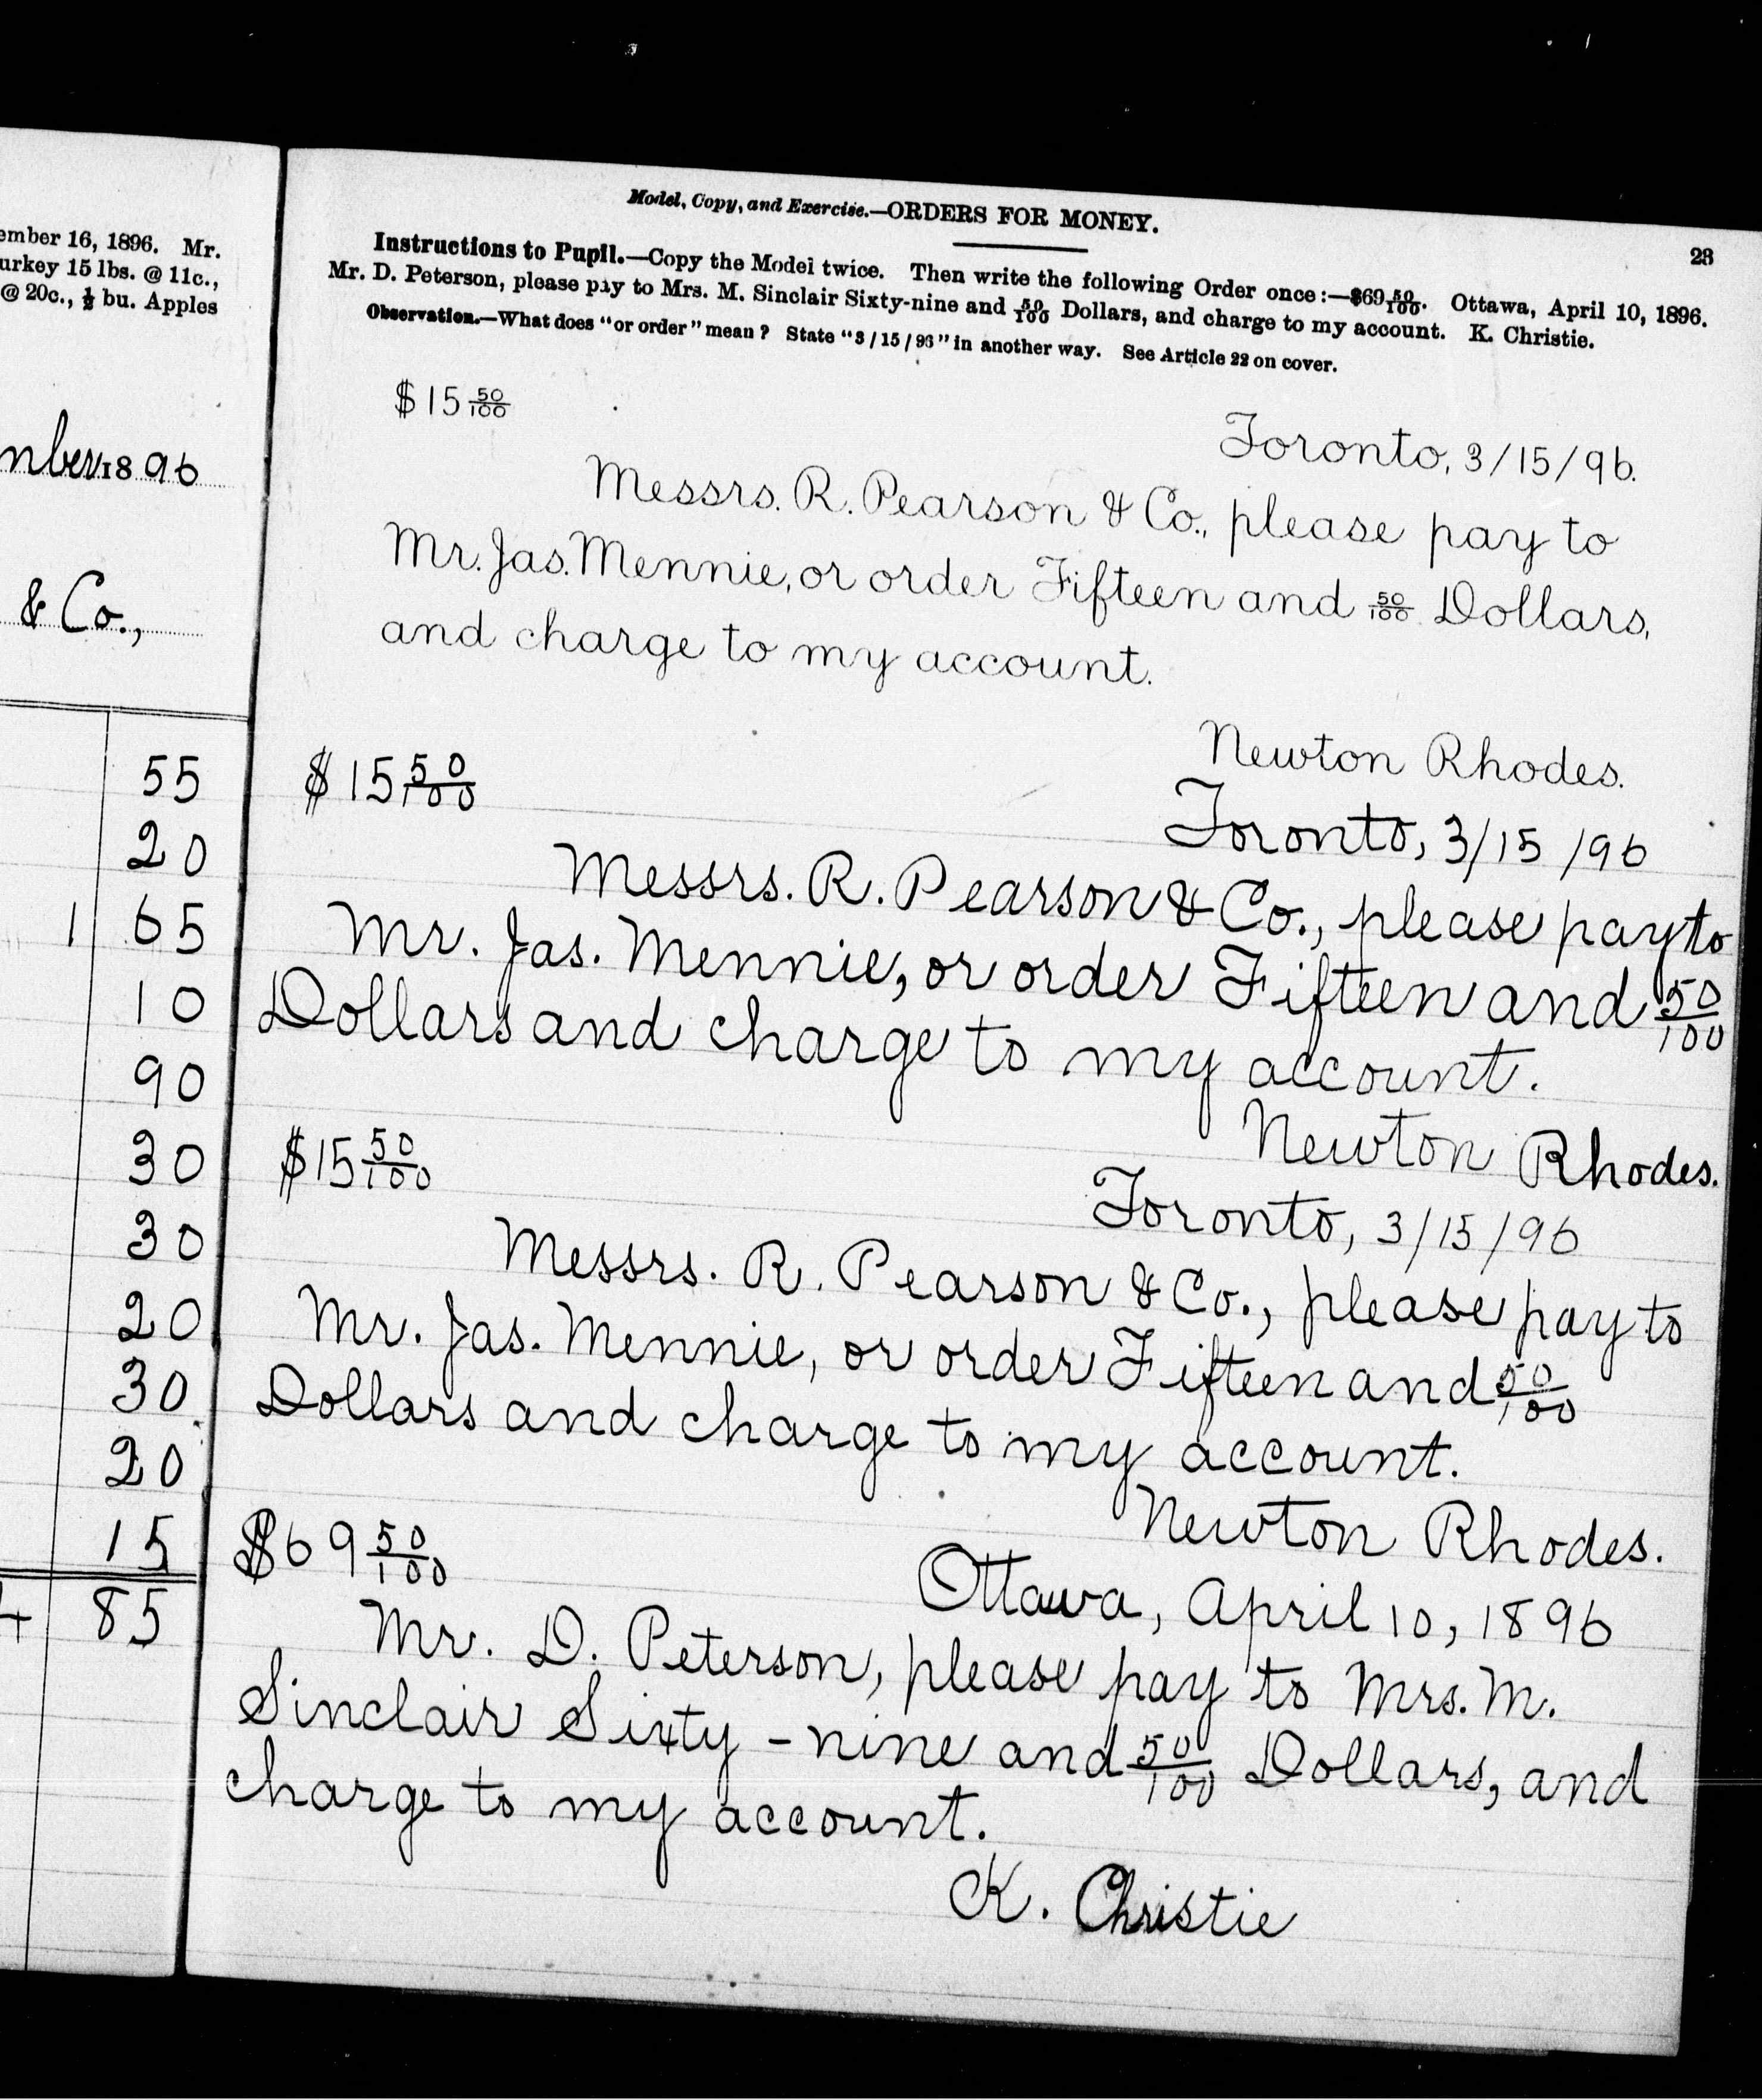 ember 16, 1896. Mr.
urkey 15 lbs. @ 11c.,
@ 20c., ½ bu. Apples
mber 1896
& Co.,
55
20
1 65
10
90
30
30
20
30
20
15
4 85
Model, Copy, and Exercise.—ORDERS FOR MONEY.
23
Instructions to Pupil.—Copy the Model twice. Then write the following Order once:—$69 50/100. Ottawa, April 10, 1896.
Mr. D. Peterson, please pay to Mrs. M. Sinclair Sixty-nine and 50/100 Dollars, and charge to my account. K. Christie.
Observation.—What does "or order" mean? State "3/15/96" in another way. See Article 22 on cover.
$15 50/100
Toronto, 3/15/96.
Messrs. R. Pearson & Co., please pay to
Mr. Jas. Mennie, or order Fifteen and 50/100 Dollars,
and charge to my account.
Newton Rhodes.
$15 50/100
Toronto, 3/15/96
Messrs. R. Pearson & Co., please pay to
Mr. Jas. Mennie, or order Fifteen and 50/100
Dollars and charge to my account.
Newton Rhodes.
$15 50/100
Toronto, 3/15/96
Messrs. R. Pearson & Co., please pay to
Mr. Jas. Mennie, or order Fifteen and 50/100
Dollars and charge to my account.
Newton Rhodes.
$69 50/100
Ottawa, April 10, 1896
Mr. D. Peterson, please pay to Mrs. M.
Sinclair Sixty-nine and 50/100 Dollars, and
charge to my account.
K. Christie